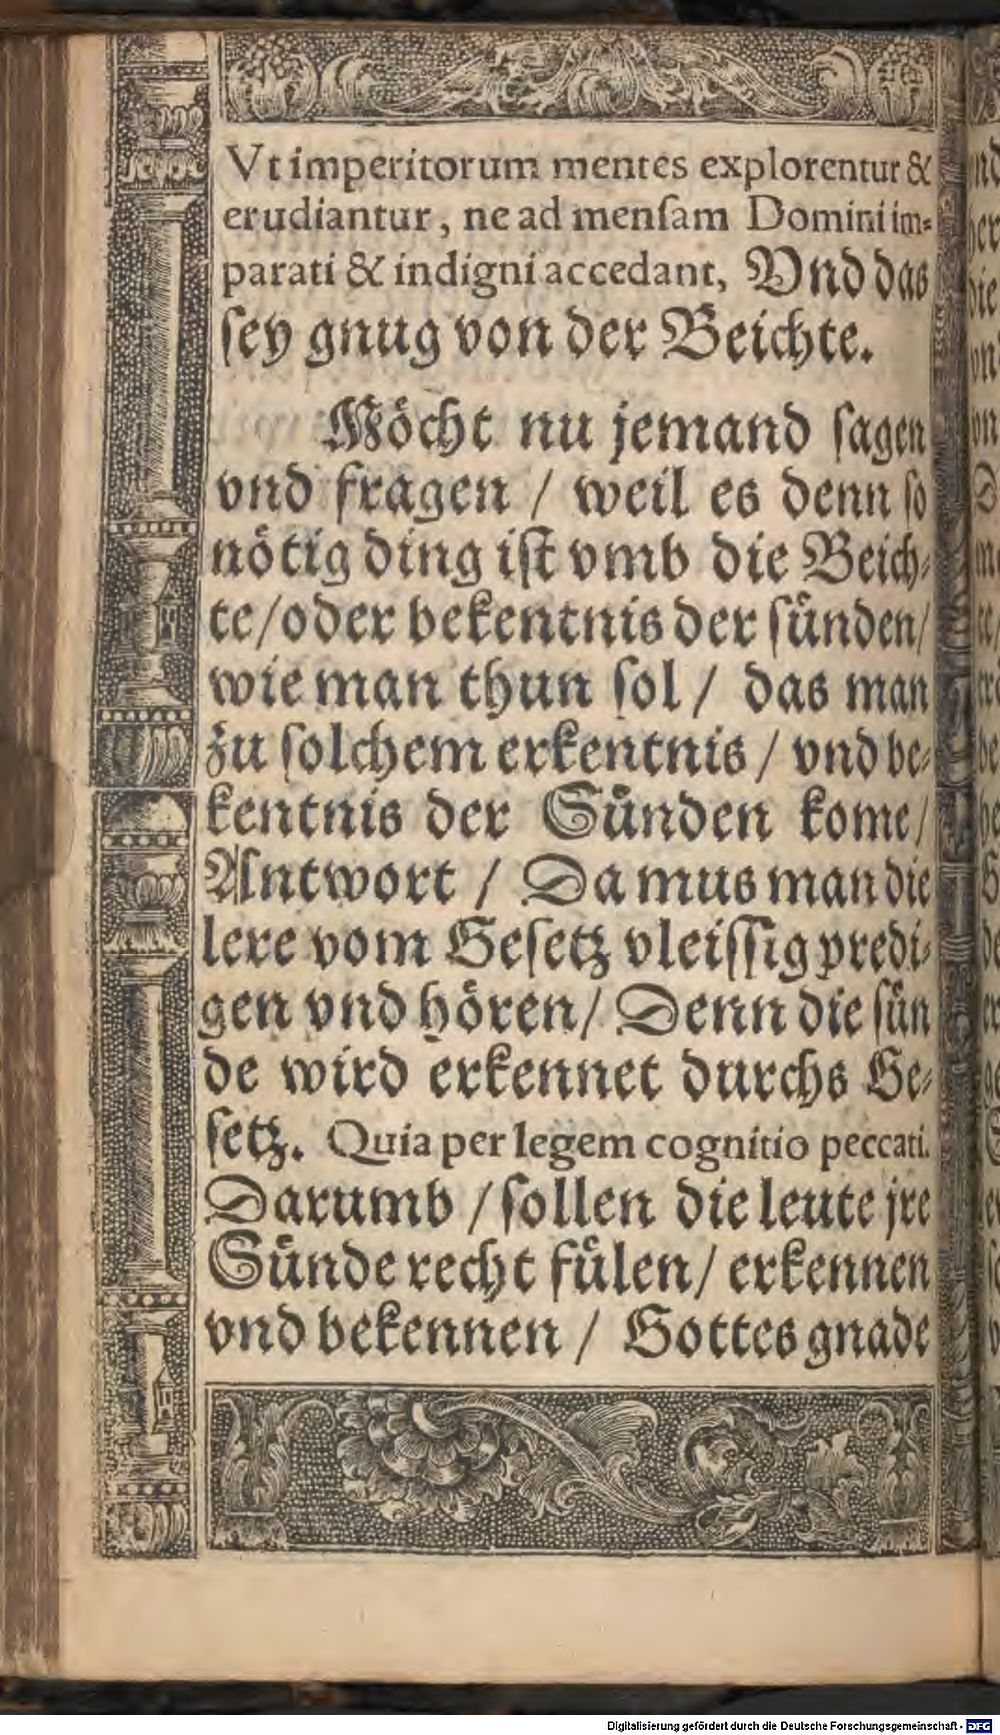 Vt imperitorum mentes explorentur &
erudiantur, ne ad menſam Domini im⸗
parati & indigni accedant, Vnd das
ſey gnug von der Beichte.
Möcht nu jemand ſagen
vnd fragen / weil es denn ſo
nötig ding iſt vmb die Beich⸗
te/oder bekentnis der ſünden/
wie man thun ſol / das man
zu ſolchem erkentnis / vnd be⸗
kentnis der Sünden kome/
Antwort / Da mus man die
lere vom Geſetz vleiſſig predi⸗
gen vnd hören/ Denn die ſün
de wird erkennet durchs Ge⸗
ſetz. Quia per legem cognitio peccati.
Darumb / ſollen die leute jre
Sünde recht fülen/ erkennen
vnd bekennen / Gottes gnade
Digitalisierung gefördert durch die Deutsche Forschungsgemeinschaft - DFG